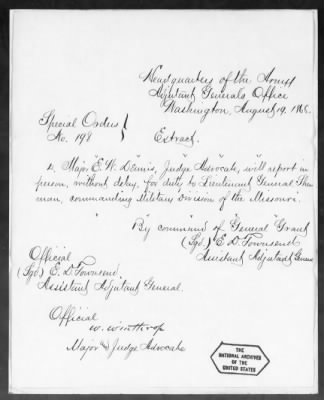 Headquarters of the Army
Adjutant Generals Office
Washington, August 19, 1868.
Special Orders
No. 198
Extract.
Major E. W. Dennis, Judge Advocate, will report in
person, without delay, for duty to Lieutenant General Sher
man, commanding Military Division of the Missouri.
By command of General Grant
(Sgd) E. D. Townsend
Assistant Adjutant General
Official
(Sgd) E. D. Townsend
Assistant Adjutant General.
Official
W. Winthrop
Major Judge Advocate
THE
NATIONAL ARCHIVES
OF THE
UNITED STATES